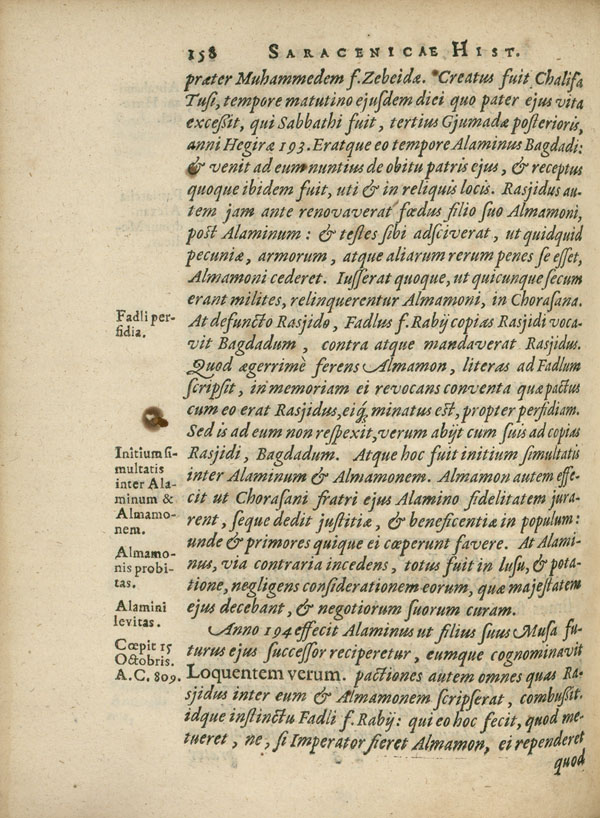 158 SARACENICAE HIST.
præter Muhammedem f. Zebeidæ. Creatus fuit Chalifa
Tusi, tempore matutino ejusdem diei quo pater ejus vita
excessit, qui Sabbathi fuit, tertius Gjumadæ posterioris,
anni Hegiræ 193. Eratque eo tempore Alaminus Bagdadi:
& venit ad eum nuntius de obitu patris ejus, & receptus
quoque ibidem fuit, uti & in reliquis locis. Rasjidus au-
tem jam ante renovaverat fœdus filio suo Almamoni,
post Alaminum: & testes sibi adsciverat, ut quidquid
pecuniæ, armorum, atque aliarum rerum penes se esset,
Almamoni cederet. Iusserat quoque, ut quicunque secum
erant milites, relinquerentur Almamoni, in Chorasana.
Fadli per-
fidia.
At defuncto Rasjido, Fadlus f. Rabij copias Rasjidi voca-
vit Bagdadum, contra atque mandaverat Rasjidus.
Quod ægerrimè ferens Almamon, literas ad Fadlum
scripsit, in memoriam ei revocans conventa quæ pactus
cum eo erat Rasjidus, eiq́; minatus est, propter perfidiam.
Sed is ad eum non respexit, verum abijt cum suis ad copias
Initium si-
multatis
inter Ala-
minum &
Almamo-
nem.
Rasjidi, Bagdadum. Atque hoc fuit initium simultatis
inter Alaminum & Almamonem. Almamon autem effe-
cit ut Chorasani fratri ejus Alamino fidelitatem jura-
rent, seque dedit justitiæ, & beneficentiæ in populum:
unde & primores quique ei cœperunt favere. At Alami-
Almamo-
nis probi-
tas.
nus, via contraria incedens, totus fuit in lusu, & pota-
tione, negligens considerationem eorum, quæ majestatem
Alamini
levitas.
ejus decebant, & negotiorum suorum curam.
Cœpit 15
Octobris.
A.C. 809.
Anno 194 effecit Alaminus ut filius suus Musa fu-
turus ejus successor reciperetur, eumque cognominavit
Loquentem verum. pactiones autem omnes quas Ra-
sjidus inter eum & Almamonem scripserat, combussit.
idque instinctu Fadli f. Rabij: qui eo hoc fecit, quod me-
tueret, ne, si Imperator fieret Almamon, ei rependeret
quod